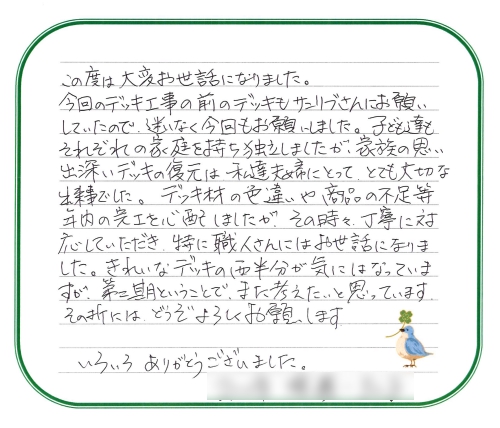 この度は大変お世話になりました。
今回のデッキ工事の前のデッキもサンリブさんにお願い
していたので、迷いなく今回もお願いしました。子ども達も
それぞれの家庭を持ち独立しましたが、家族の思い
出深いデッキの復元は私達夫婦にとって、とても大切な
出来事でした。デッキ材の色違いや商品の不足等
年内の完工を心配しましたが、その時々、丁寧に対
応していただき、特に職人さんにはお世話になりま
した。きれいなデッキの西半分が気にはなっていま
すが、第二期ということで、また考えたいと思っています。
その折には、どうぞよろしくお願いします
いろいろ ありがとうございました。